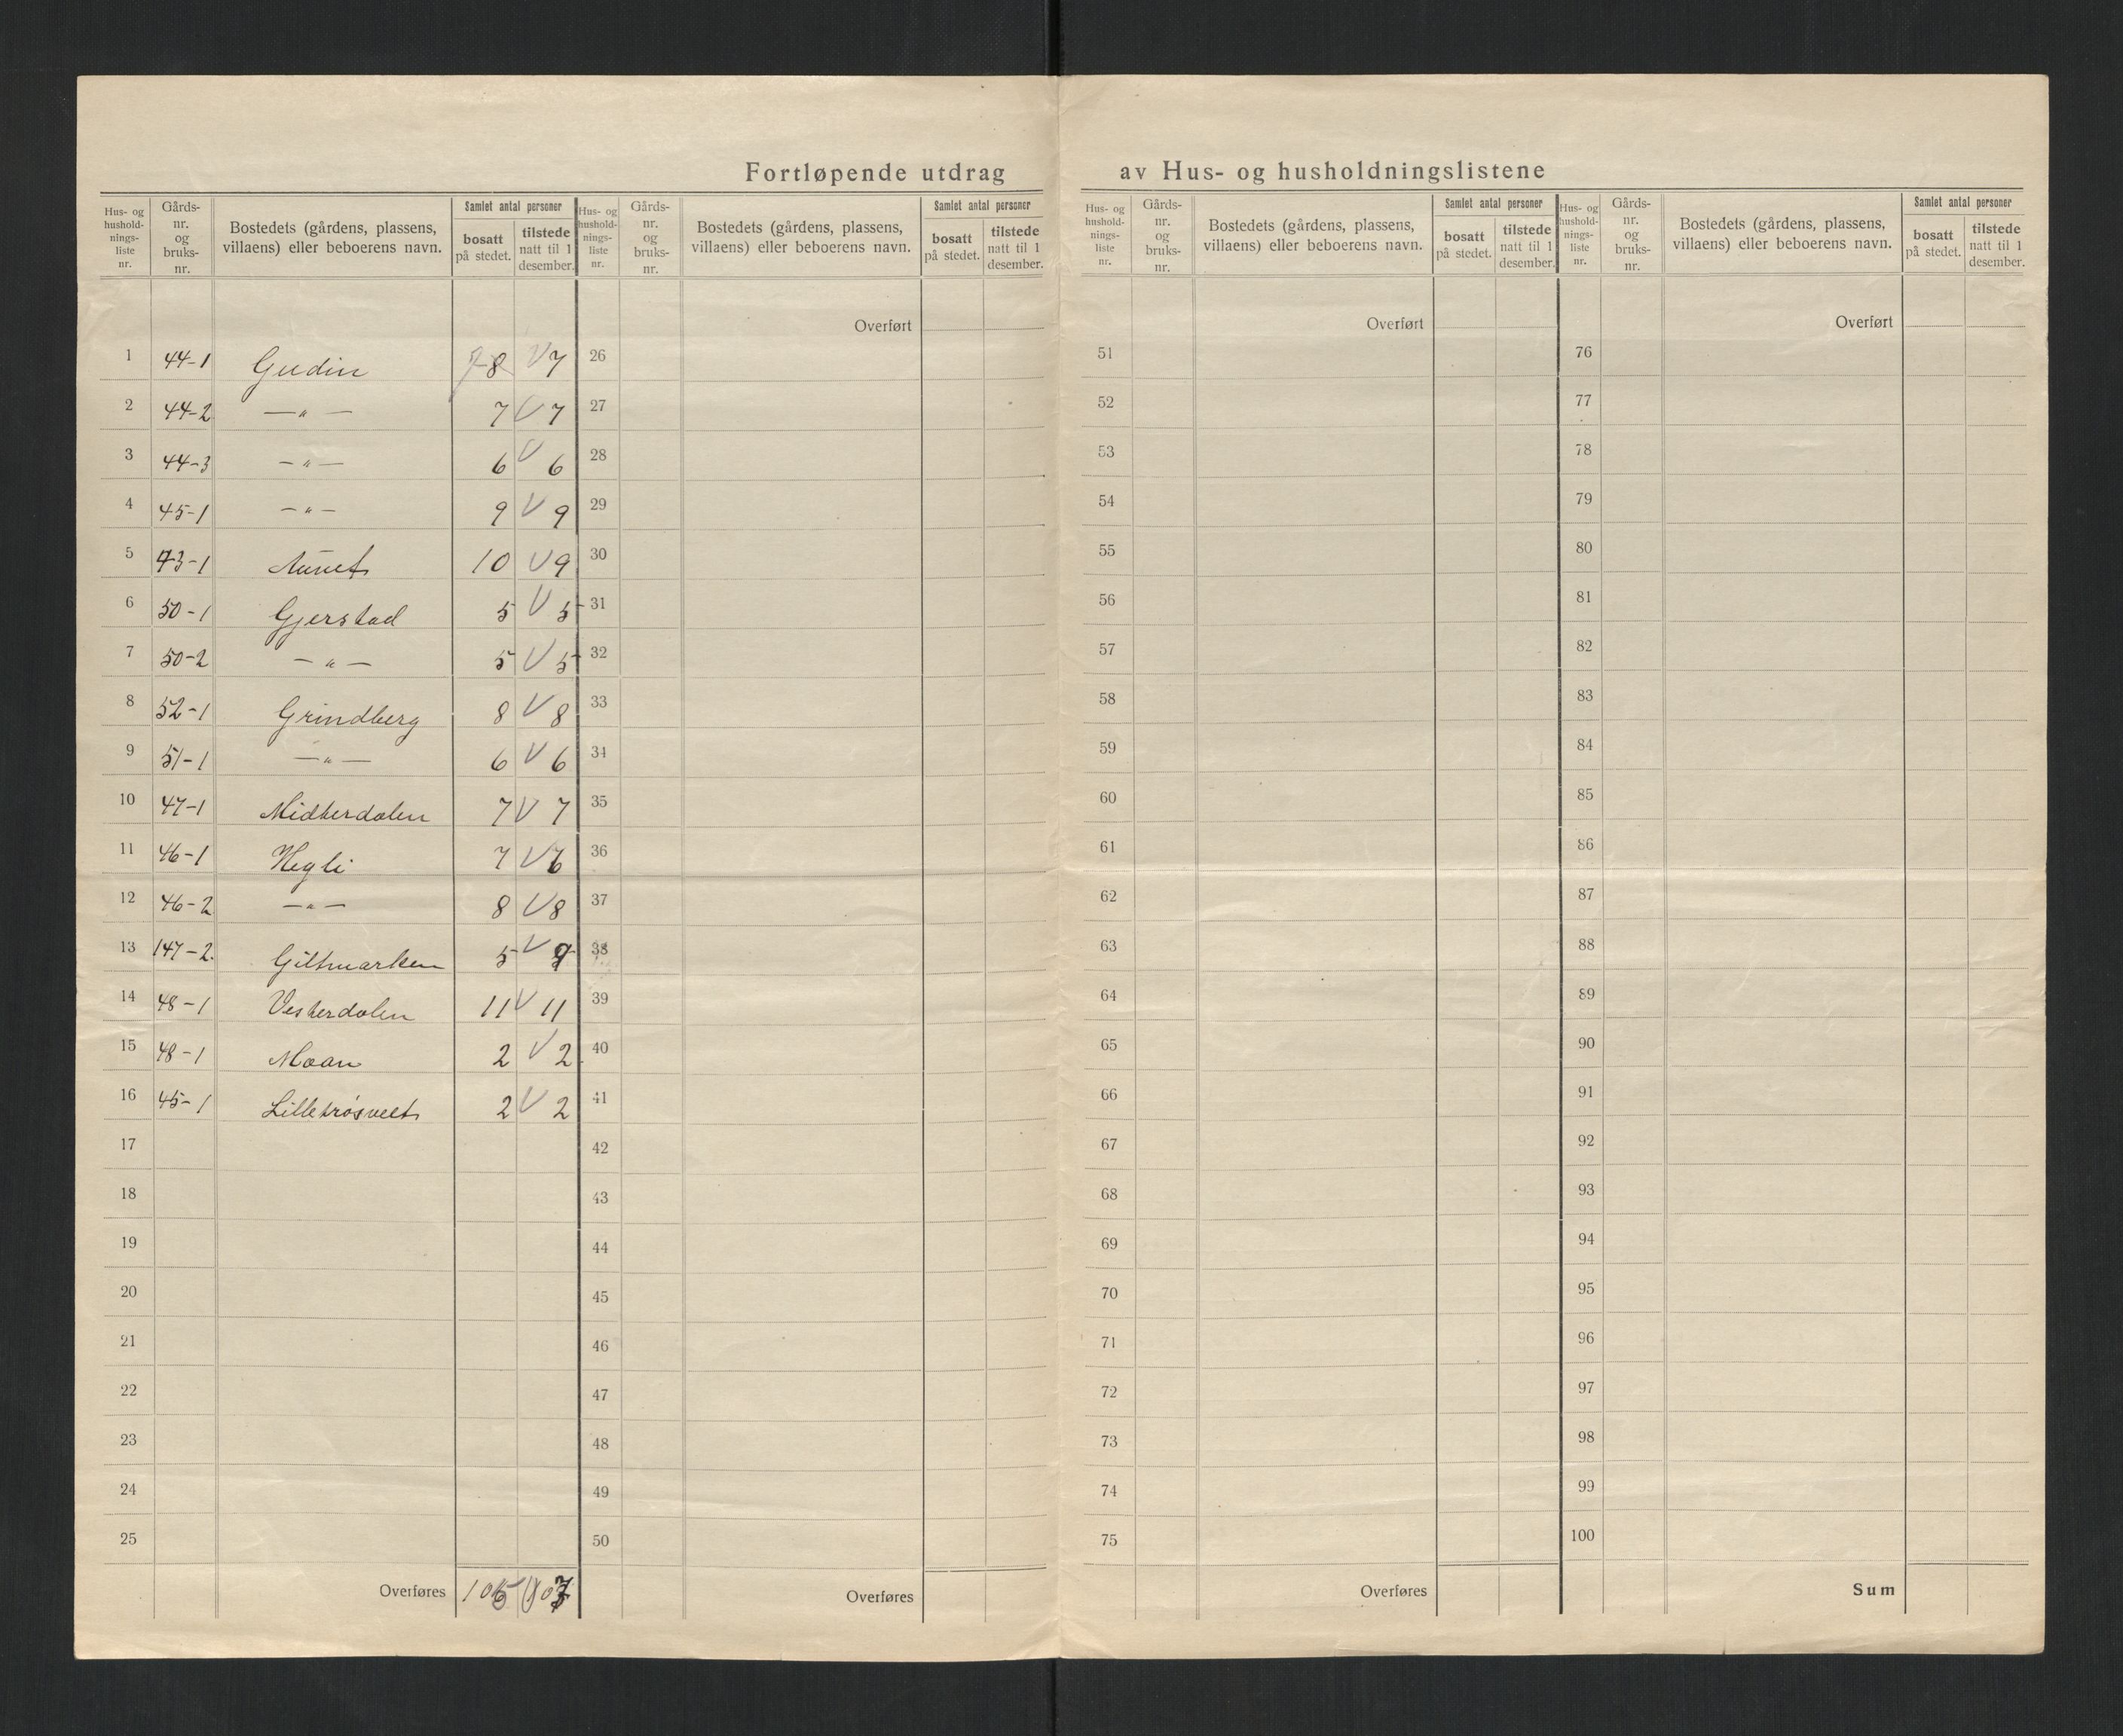 Fortløpende utdrag av Hus- og husholdningslistene
Hus- og hushold-nings-liste nr. Gårds-nr. og bruks-nr. Bostedets (gårdens, plassens, villaens) eller beboerens navn. Samlet antal personer bosatt på stedet. tilstede natt til 1 desember.
1 44-1 Gudin 8 V 7
2 44-2 —„— 7 V 7
3 44-3 —„— 6 V 6
4 45-1 —„— 9 V 9
5 43-1 Aunet 10 V 9
6 50-1 Gjerstad 5 V 5
7 50-2 —„— 5 V 5
8 52-1 Grindberg 8 V 8
9 51-1 —„— 6 V 6
10 47-1 Midterdalen 7 V 7
11 46-1 Hegli 7 V 6
12 46-2 —„— 8 V 8
13 147-2. 5 V
14 48-1 Vesterdalen 11 V 11
15 48-1 Moan 2 V 2
16 45-1 Lilletrøsveet 2 V 2
17
18
19
20
21
22
23
24
25
Overføres
Hus- og hushold-nings-liste nr. Gårds-nr. og bruks-nr. Bostedets (gårdens, plassens, villaens) eller beboerens navn. Samlet antal personer bosatt på stedet. tilstede natt til 1 desember.
Overført
26
27
28
29
30
31
32
33
34
35
36
37
38
39
40
41
42
43
44
45
46
47
48
49
50
Overføres
Hus- og hushold-nings-liste nr. Gårds-nr. og bruks-nr. Bostedets (gårdens, plassens, villaens) eller beboerens navn. Samlet antal personer bosatt på stedet. tilstede natt til 1 desember.
Overført
51
52
53
54
55
56
57
58
59
60
61
62
63
64
65
66
67
68
69
70
71
72
73
74
75
Overføres
Hus- og hushold-nings-liste nr. Gårds-nr. og bruks-nr. Bostedets (gårdens, plassens, villaens) eller beboerens navn. Samlet antal personer bosatt på stedet. tilstede natt til 1 desember.
Overført
76
77
78
79
80
81
82
83
84
85
86
87
88
89
90
91
92
93
94
95
96
97
98
99
100
Sum